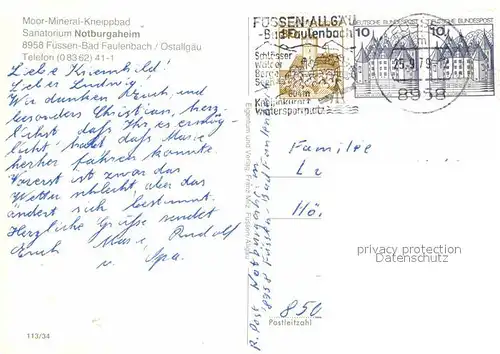 Moor-Mineral-Kneippbad
Sanatorium Notburgaheim
8958 Füssen-Bad Faulenbach / Ostallgäu
Telefon (08362) 41-1
Liebe Kriemhild!
Lieber Ludwig!
Wir danken Euch, und
besonders Christian, herz-
lichst daß Ihr es ermög-
licht habt daß Maria
herher fahren konnte.
Vorerst ist zwar das
Wetter schlecht, aber das
ändert sich bestimmt.
Herzliche Grüße sendet
Euch Maria, Rudolf
u. Opa.
113/34
FÜSSEN-ALLGÄU
-Bad Faulenbach
Schlösser
Wälder
Berge
Seen
804m
Kneippkurort
Wintersportplatz
DEUTSCHE BUNDESPOST
10
DEUTSCHE BUNDESPOST
10
25.9.79
8958
Familie
Lu
Hö
850
Postleitzahl
R. Post Notburgaheim
8958 Füssen Bad Faulenbach
privacy protection
Datenschutz